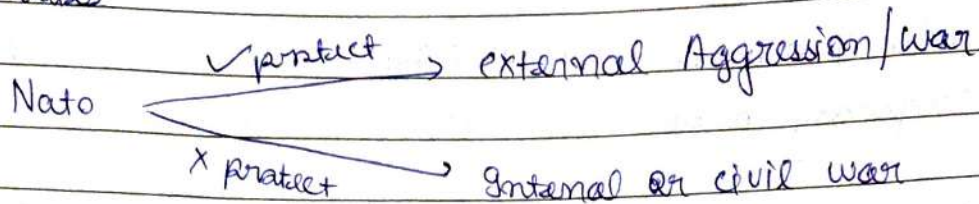 ✓ protect → external Aggression/war
Nato
× protect → Internal or civil war